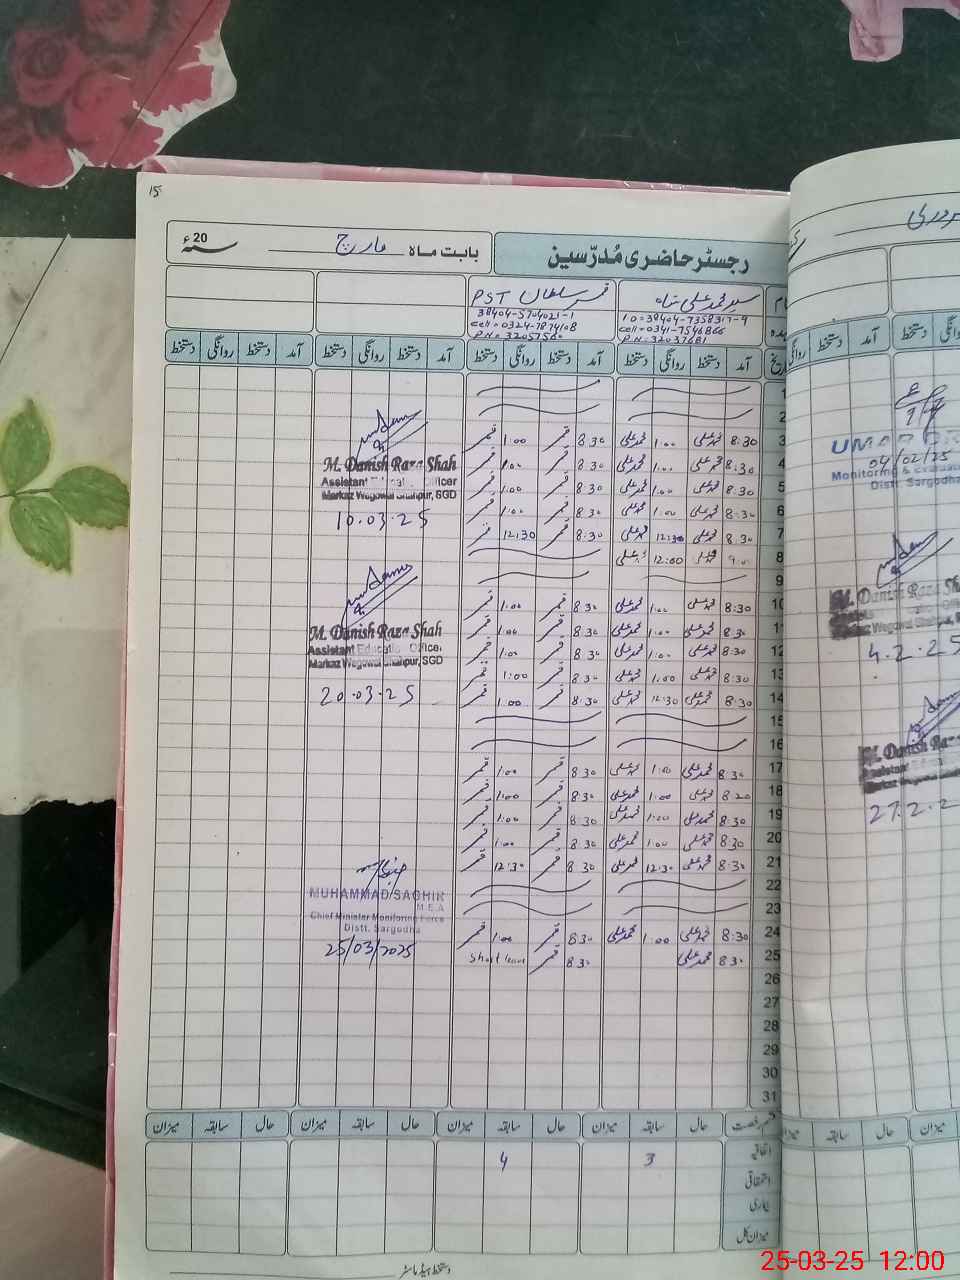 15
رجسٹر حاضری مُدرّسین
بابت ماہ مارچ
20 سنہء
سید محمد علی شاہ
قمر سلطان PST
38404-5704021-1
cell=0324-7874108
P.N=3205756
ID=38404-7358317-9
cell=0341-7546866
P.N=32037681
آمد دستخط روانگی دستخط آمد دستخط روانگی دستخط آمد دستخط روانگی دستخط آمد دستخط روانگی دستخط
1
2
3 8:30 محمد علی 1:00 محمد علی 8:30 قمر 1:00 قمر
4 8:30 محمد علی 1:00 محمد علی 8:30 قمر 1:00 قمر
5 8:30 محمد علی 1:00 محمد علی 8:30 قمر 1:00 قمر
6 8:30 محمد علی 1:00 محمد علی 8:30 قمر 1:00 قمر
7 8:30 محمد علی 12:30 محمد علی 8:30 قمر 12:30 قمر
8 9:00 محمد علی 12:00 محمد علی
9
10 8:30 محمد علی 1:00 محمد علی 8:30 قمر 1:00 قمر
11 8:30 محمد علی 1:00 محمد علی 8:30 قمر 1:00 قمر
12 8:30 محمد علی 1:00 محمد علی 8:30 قمر 1:00 قمر
13 8:30 محمد علی 1:00 محمد علی 8:30 قمر 1:00 قمر
14 8:30 محمد علی 12:30 محمد علی 8:30 قمر 1:00 قمر
15
16
17 8:30 محمد علی 1:00 محمد علی 8:30 قمر 1:00 قمر
18 8:20 محمد علی 1:00 محمد علی 8:30 قمر 1:00 قمر
19 8:30 محمد علی 1:00 محمد علی 8:30 قمر 1:00 قمر
20 8:30 محمد علی 1:00 محمد علی 8:30 قمر 1:00 قمر
21 8:30 محمد علی 12:30 محمد علی 8:30 قمر 12:30 قمر
22
23
24 8:30 محمد علی 1:00 محمد علی 8:30 قمر 1:00 قمر
25 8:30 محمد علی 8:30 قمر Short leave
26
27
28
29
30
31
M. Danish Raza Shah
Assistant Education Officer
Markaz Wegowal Shahpur, SGD
10.03.25
M. Danish Raza Shah
Assistant Education Officer
Markaz Wegowal Shahpur, SGD
20.03.25
MUHAMMAD SAGHIR
M.E.A
Chief Minister Monitoring Force
Distt. Sargodha
25/03/2025
قسم رخصت حال سابقہ میزان حال سابقہ میزان حال سابقہ میزان حال سابقہ میزان
اتفاقیہ 3 4
استحقاقی
بیماری
میزان کل
دستخط ہیڈ ماسٹر
04/02/25
Monitoring &
Distt. Sargodha
M. Danish Raza
Markaz Wegowal Shahpur,
4.2.25
27.2.2
آمد دستخط روانگی
حال سابقہ میزان
25-03-25 12:00